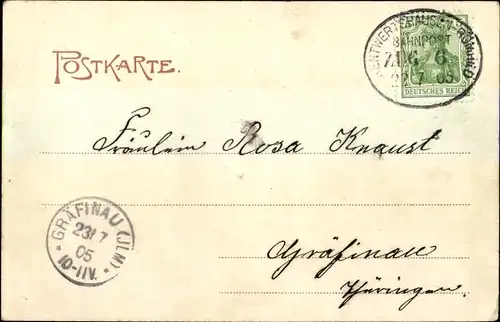 POSTKARTE.
BAHNPOST
ZUG 6
DEUTSCHES REICH
Fräulein Rosa Knaust
GRÄFINAU (ILM)
23/7
05
10-11V.
Gräfinau
Thüringen